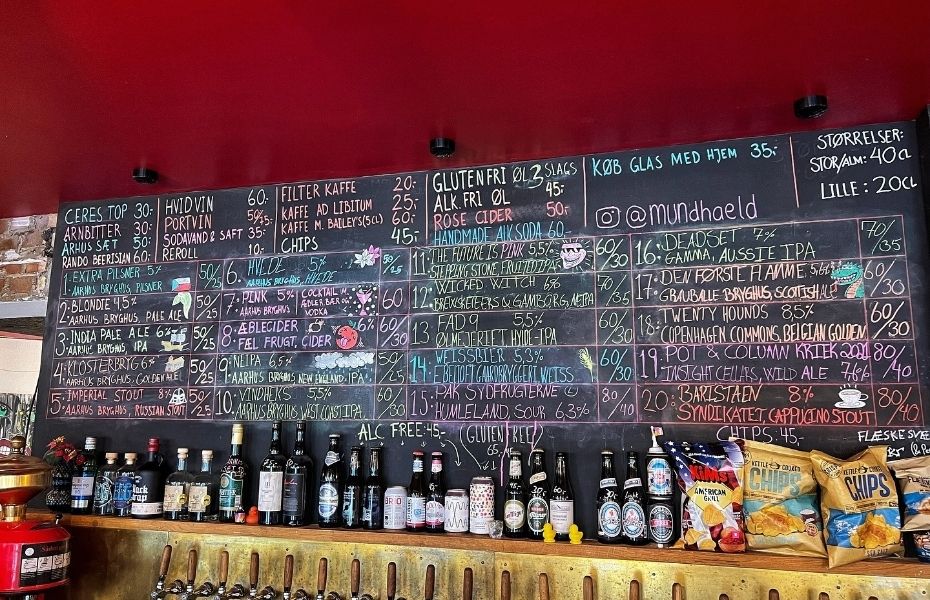 CERES TOP 30.-
ARNBITTER 30.-
AARHUS SÆT 50.-
RANDO BEERISIAN 60.-
HVIDVIN 60.-
PORTVIN
SODAVAND & SAFT 35.-
REROLL 10.-
FILTER KAFFE 20.-
KAFFE AD LIBITUM 25.-
KAFFE M. BAILEY'S (5CL) 60.-
CHIPS 45.-
GLUTENFRI ØL 3 SLAGS
ALK. FRI ØL 45.-
ROSE CIDER 50.-
HANDMADE ALKSODA 60.-
KØB GLAS MED HJEM 35.-
@mundhaeld
STØRRELSER:
STOR/ALM: 40CL
LILLE: 20CL
1. EXTRA PILSNER 5% 50/25
AARHUS BRYGHUS, PILSNER
2. BLONDIE 4.5% 50/25
AARHUS BRYGHUS, PALE ALE
3. INDIA PALE ALE 6% 50/25
AARHUS BRYGHUS IPA
4. KLOSTERBRYG 6% 50/25
AARHUS BRYGHUS, GOLDEN ALE
5. IMPERIAL STOUT 8% 50/25
AARHUS BRYGHUS, RUSSIAN STOUT
6. HVEDE 5% 50/25
AARHUS BRYGHUS, HVEDE
7. PINK 5% COCKTAIL M. 60
VODKA
8. ÆBLECIDER 6% 60/30
FÆL FRUGT, CIDER
9. NEIPA 6.5% 50/25
AARHUS BRYGHUS, NEW ENGLAND IPA
10. VINDHEKS 5,5% 50/25
AARHUS BRYGHUS, WEST COAST IPA
11. THE FUTURE IS PINK 5,5% 60/30
STEPPING STONE, FRUITED IPA
12. WICKED WITCH 6% 70/35
& GAMBORG, NEIPA
13. FAD 9 5,5% 60/30
ØLMEJERIET, HYLD-IPA
14. WEISSBIER 5,3% 60/30
EBELTOFT GAARDBRYGGERI WEISS
15. PAK SYDFRUGTERNE 80/40
HUMLELAND SOUR 6.3%
16. DEADSET 7% 70/35
GAMMA, AUSSIE IPA
17. DEN FØRSTE FLAMME 5,6% 60/30
GRAUBALLE BRYGHUS, SCOTTISH ALE
18. TWENTY HOUNDS 8,5% 60/30
COPENHAGEN COMMONS, BELGIAN GOLDEN
19. POT & COLUMN KRIEK 2021 80/40
INSIGHT CELLARS, WILD ALE
20. BARISTAEN 8% 80/40
SYNDIKATET CAPPUCINO STOUT
ALC FREE 45.-
(GLUTEN FREE)
CHIPS 45.-
FLÆSKESVÆ
KiMs
AMERICAN GRILL
KETTLE COOKED
CHIPS
KETTLE COOKED
CHIPS